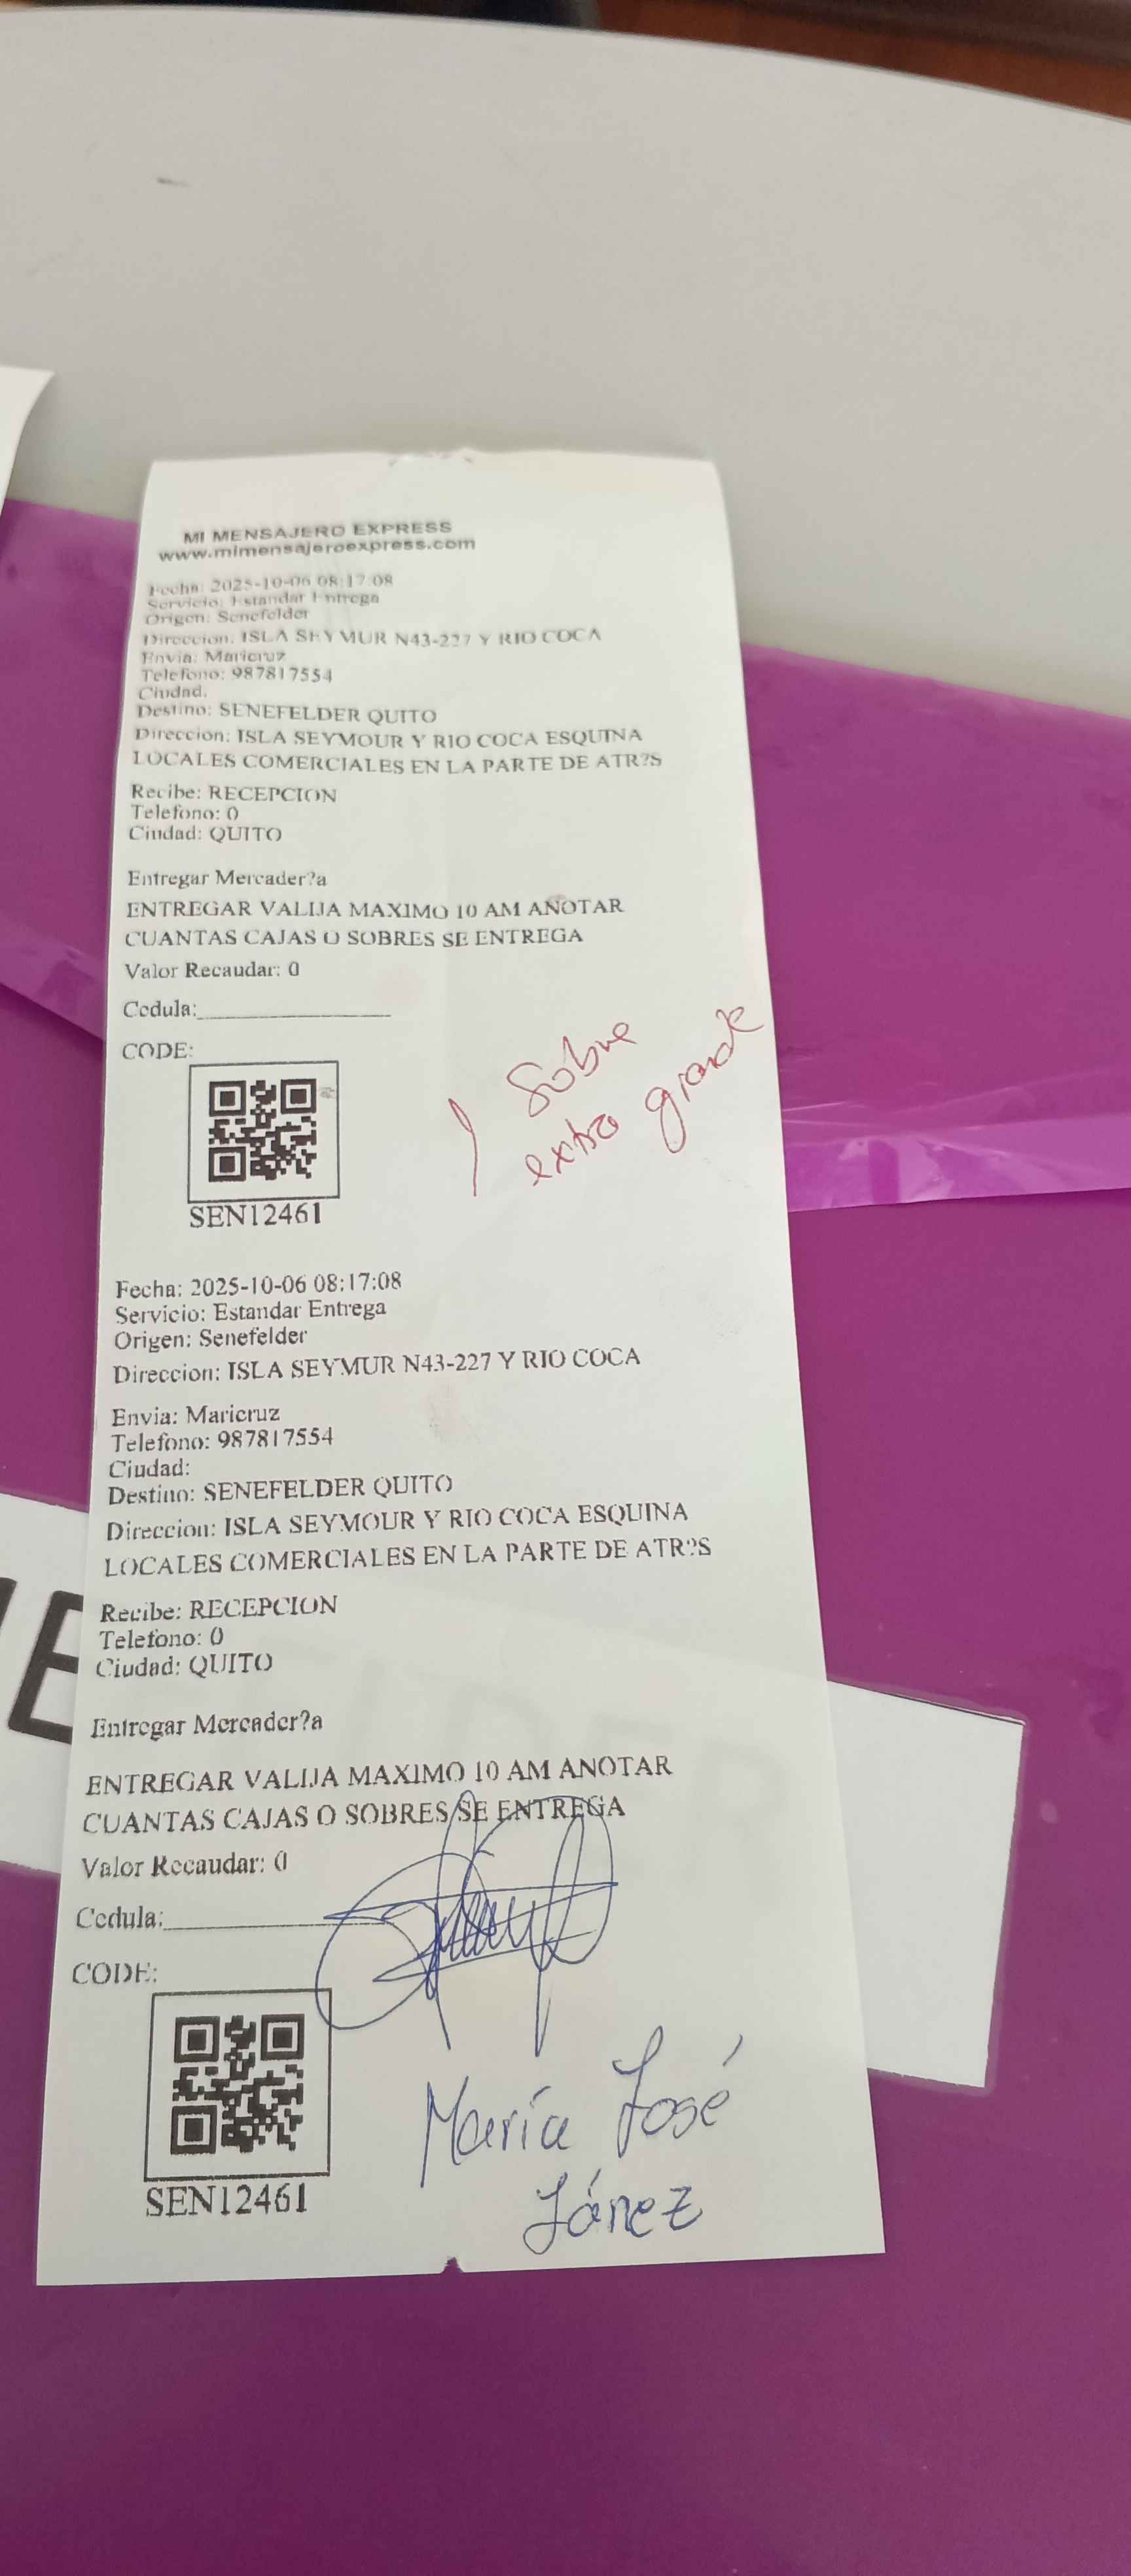 MI MENSAJERO EXPRESS
www.mimensajeroexpress.com
Fecha: 2025-10-06 08:17:08
Servicio: Estandar Entrega
Origen: Senefelder
Direccion: ISLA SEYMUR N43-227 Y RIO COCA
Envia: Maricruz
Telefono: 987817554
Ciudad:
Destino: SENEFELDER QUITO
Direccion: ISLA SEYMOUR Y RIO COCA ESQUINA
LOCALES COMERCIALES EN LA PARTE DE ATR?S
Recibe: RECEPCION
Telefono: 0
Ciudad: QUITO
Entregar Mercader?a
ENTREGAR VALIJA MAXIMO 10 AM ANOTAR
CUANTAS CAJAS O SOBRES SE ENTREGA
Valor Recaudar: 0
Cedula:
CODE:
1 Sobre
extra grande
SEN12461
Fecha: 2025-10-06 08:17:08
Servicio: Estandar Entrega
Origen: Senefelder
Direccion: ISLA SEYMUR N43-227 Y RIO COCA
Envia: Maricruz
Telefono: 987817554
Ciudad:
Destino: SENEFELDER QUITO
Direccion: ISLA SEYMOUR Y RIO COCA ESQUINA
LOCALES COMERCIALES EN LA PARTE DE ATR?S
Recibe: RECEPCION
Telefono: 0
Ciudad: QUITO
Entregar Mercader?a
ENTREGAR VALIJA MAXIMO 10 AM ANOTAR
CUANTAS CAJAS O SOBRES SE ENTREGA
Valor Recaudar: 0
Cedula:
CODE:
María José
Jánez
SEN12461